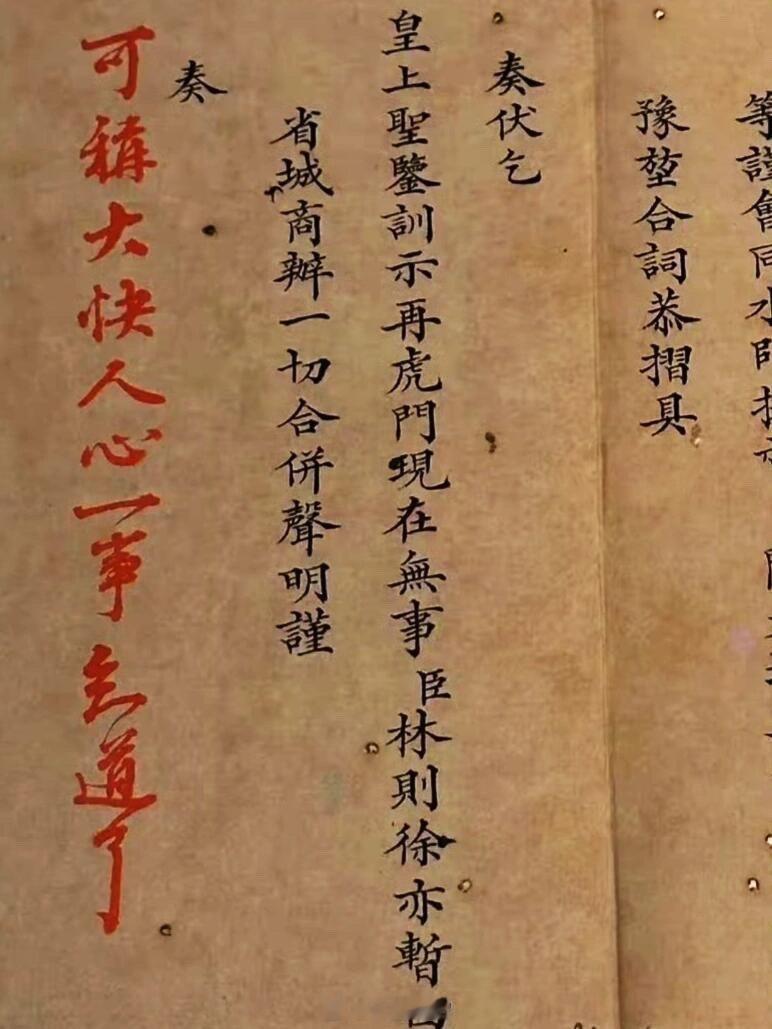 等謹會同水師提
豫堃合詞恭摺具
奏伏乞
皇上聖鑒訓示再虎門現在無事臣林則徐亦暫
省城商辦一切合併聲明謹
奏
可稱大快人心一事知道了